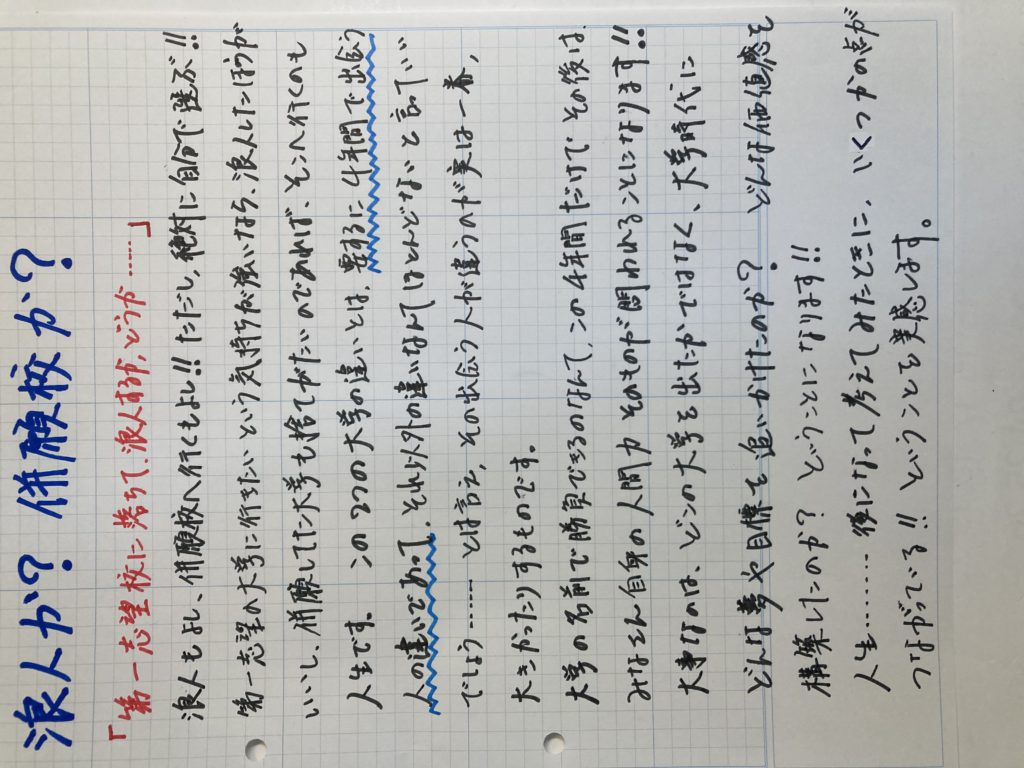 浪人か？ 併願校か？
「第一志望校に落ちて、浪人するか、どうか……」
浪人もよし、併願校へ行くもよし!! ただし、絶対に自分で選ぶ!!
第一志望の大学に行きたいという気持ちが強いなら、浪人したほうが
いいし、併願してた大学も捨てがたいのであれば、そこへ行くのも
人生です。 この2つの大学の違いとは、要するに4年間で出会う
人の違いであって、それ以外の違いなんてほとんどないと言っていい
でしょう……… とは言え、その出会う人が違うのが実は一番、
大きかったりするものです。
大学の名前で勝負できるのなんて、この4年間だけで、その後は、
みなさん自身の人間力そのものが問われることになります!!
大事なのは、どこの大学を出たかではなく、大学時代に
どんな夢や目標を追いかけたのか？ どんな価値感を
構築したのか？ ということになります!!
人生……… 後になって考えてみたときに、いくつかの点が
つながっている!! ということを実感します。